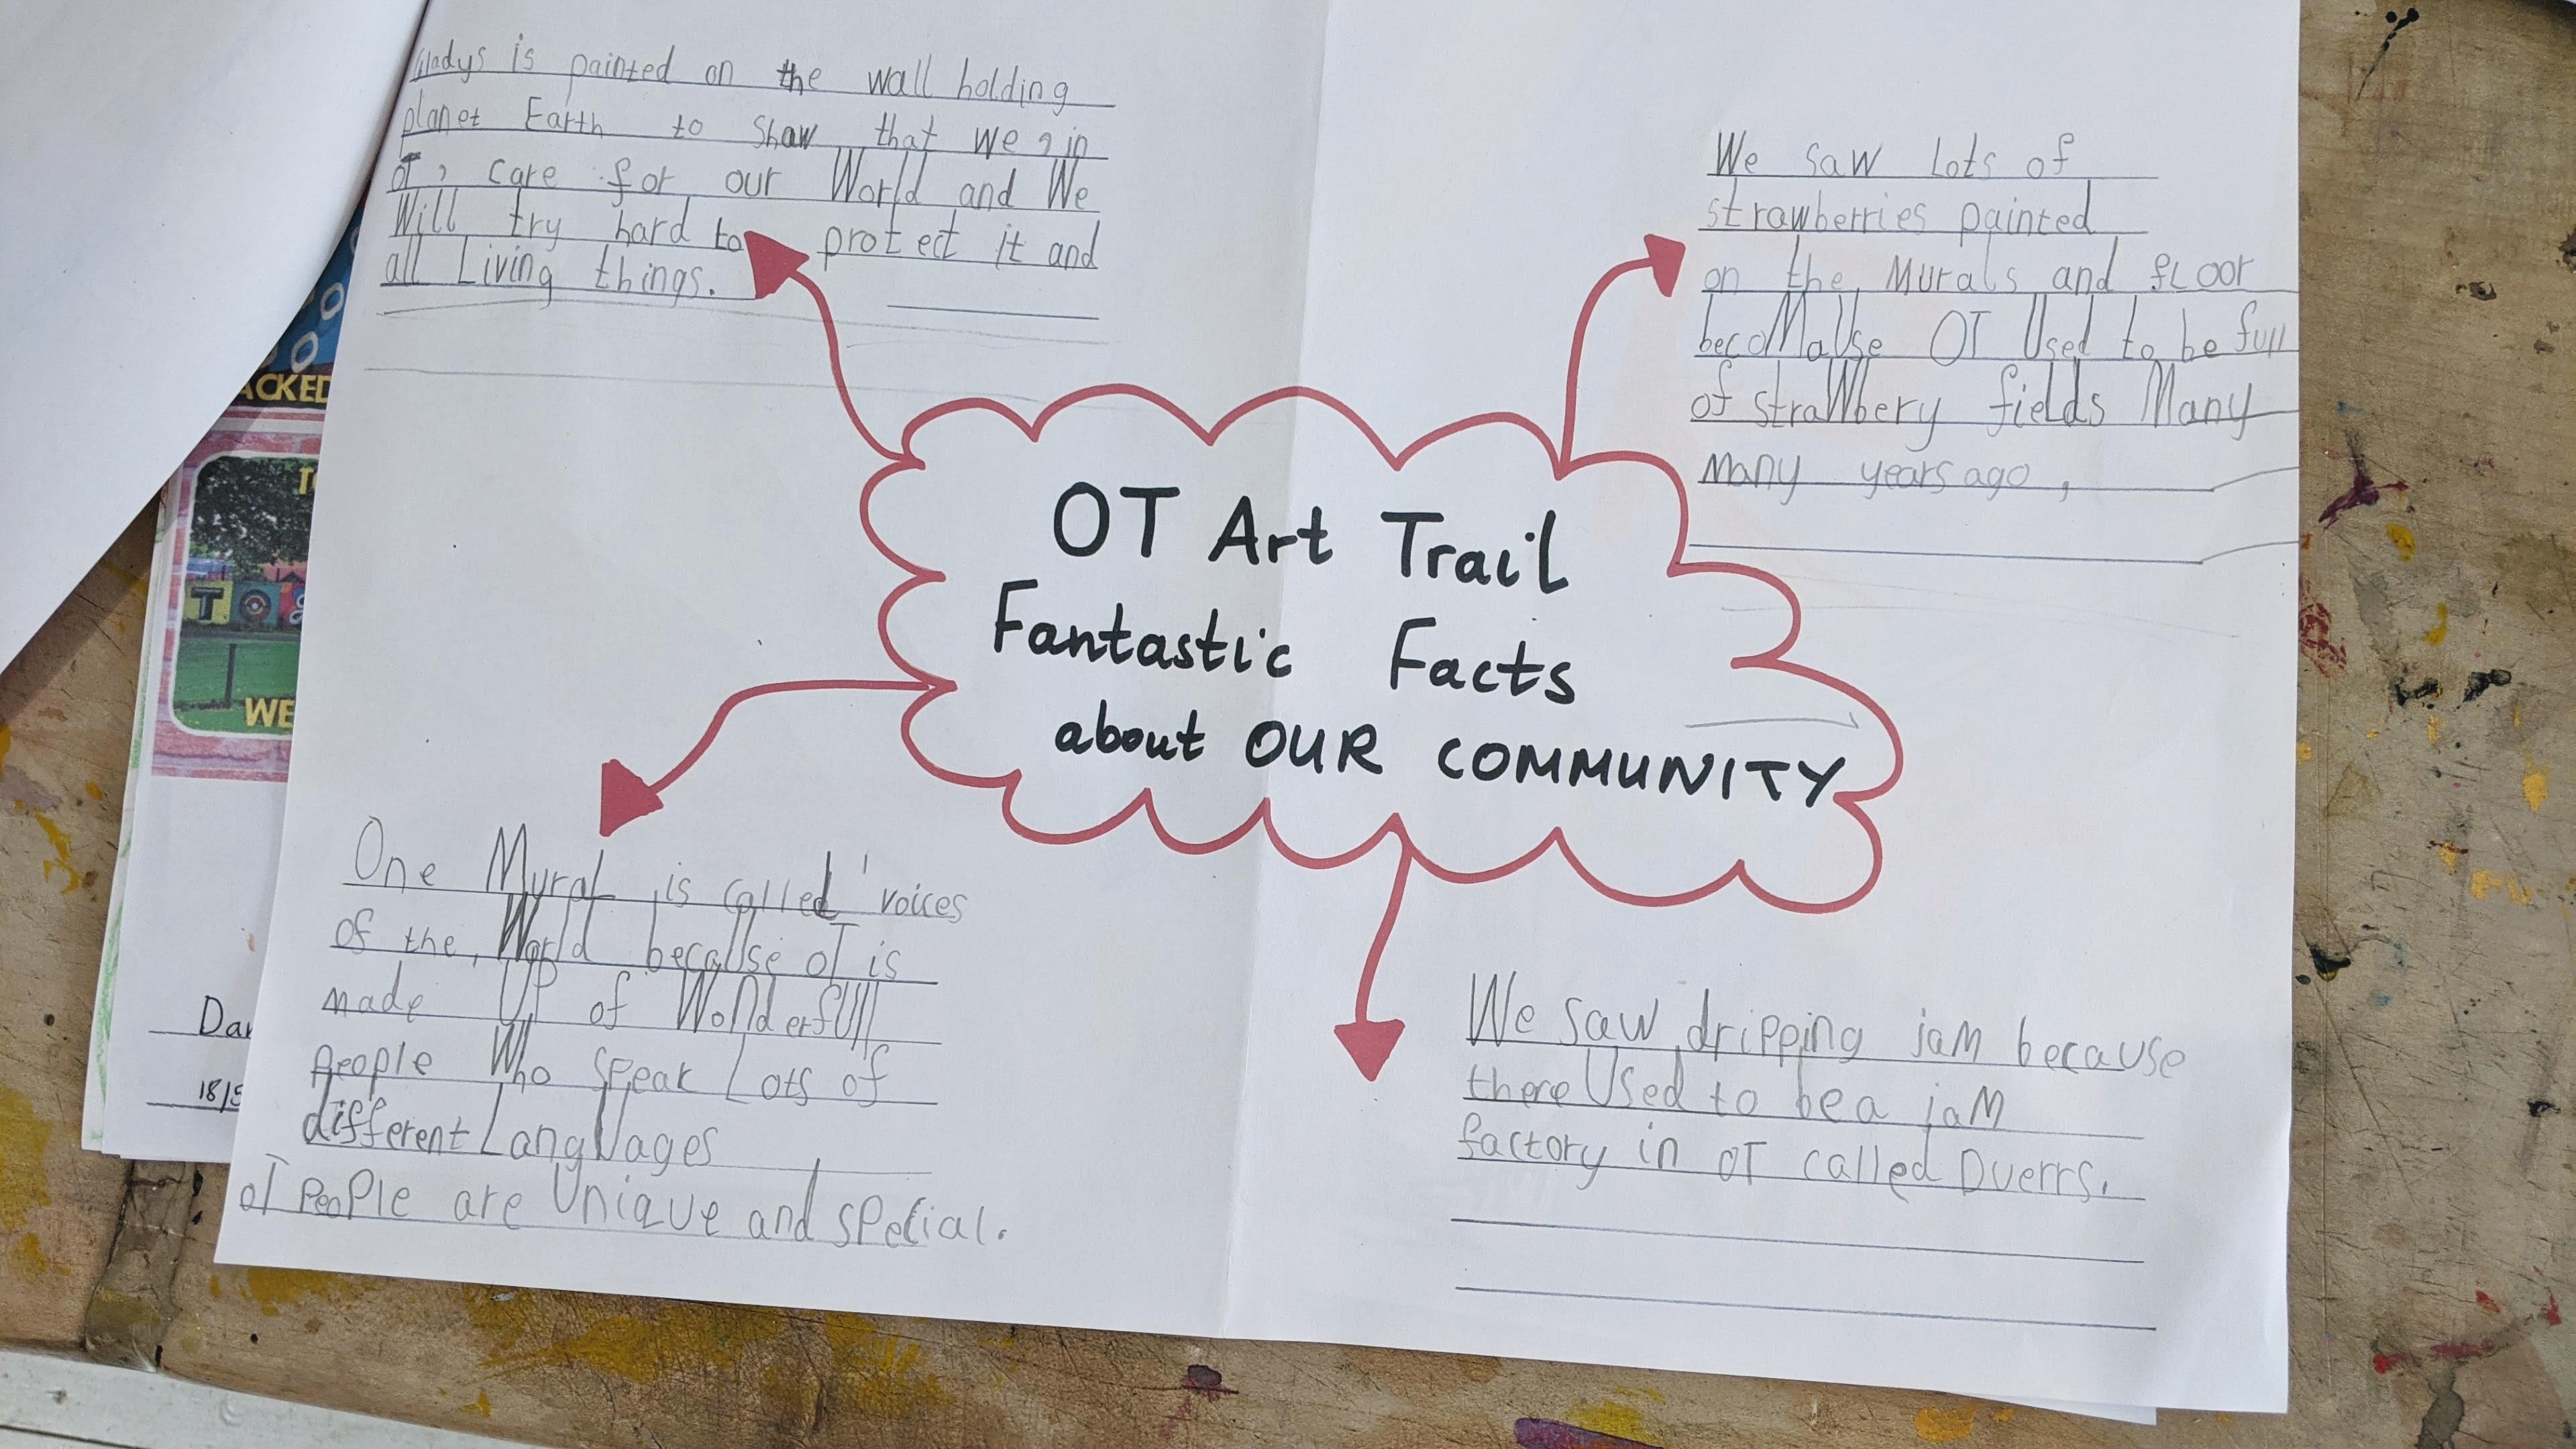 Gladys is painted on the wall holding
planet Earth to shaw that we, in
OT, care for our World and We
Will try hard to protect it and
all Living things.
We saw Lots of
strawberries painted
on the Murals and fLoor
becoMaUse OT Used to be full
of straWbery fields Many
Many years ago,
OT Art Trail
Fantastic Facts
about OUR COMMUNITY
One Mural is called 'voices
of the, World because OT is
made UP of WoNderfUll
People Who speak Lots of
different LangUages
OT PeoPle are Unique and sPecial.
We saw dripping jaM because
there Used to be a jaM
factory in OT called Duerrs.
ACKED
TO
WE
Dar
18/5